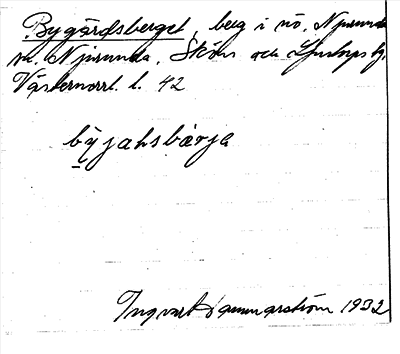 Bygårdsberget, berg i nö. Njurunda
sn. Njurunda, Sköns och Ljustorps tg.
Västernorrl. l. 42
byjaḷsbærja
Ingvar Hammarström 1932